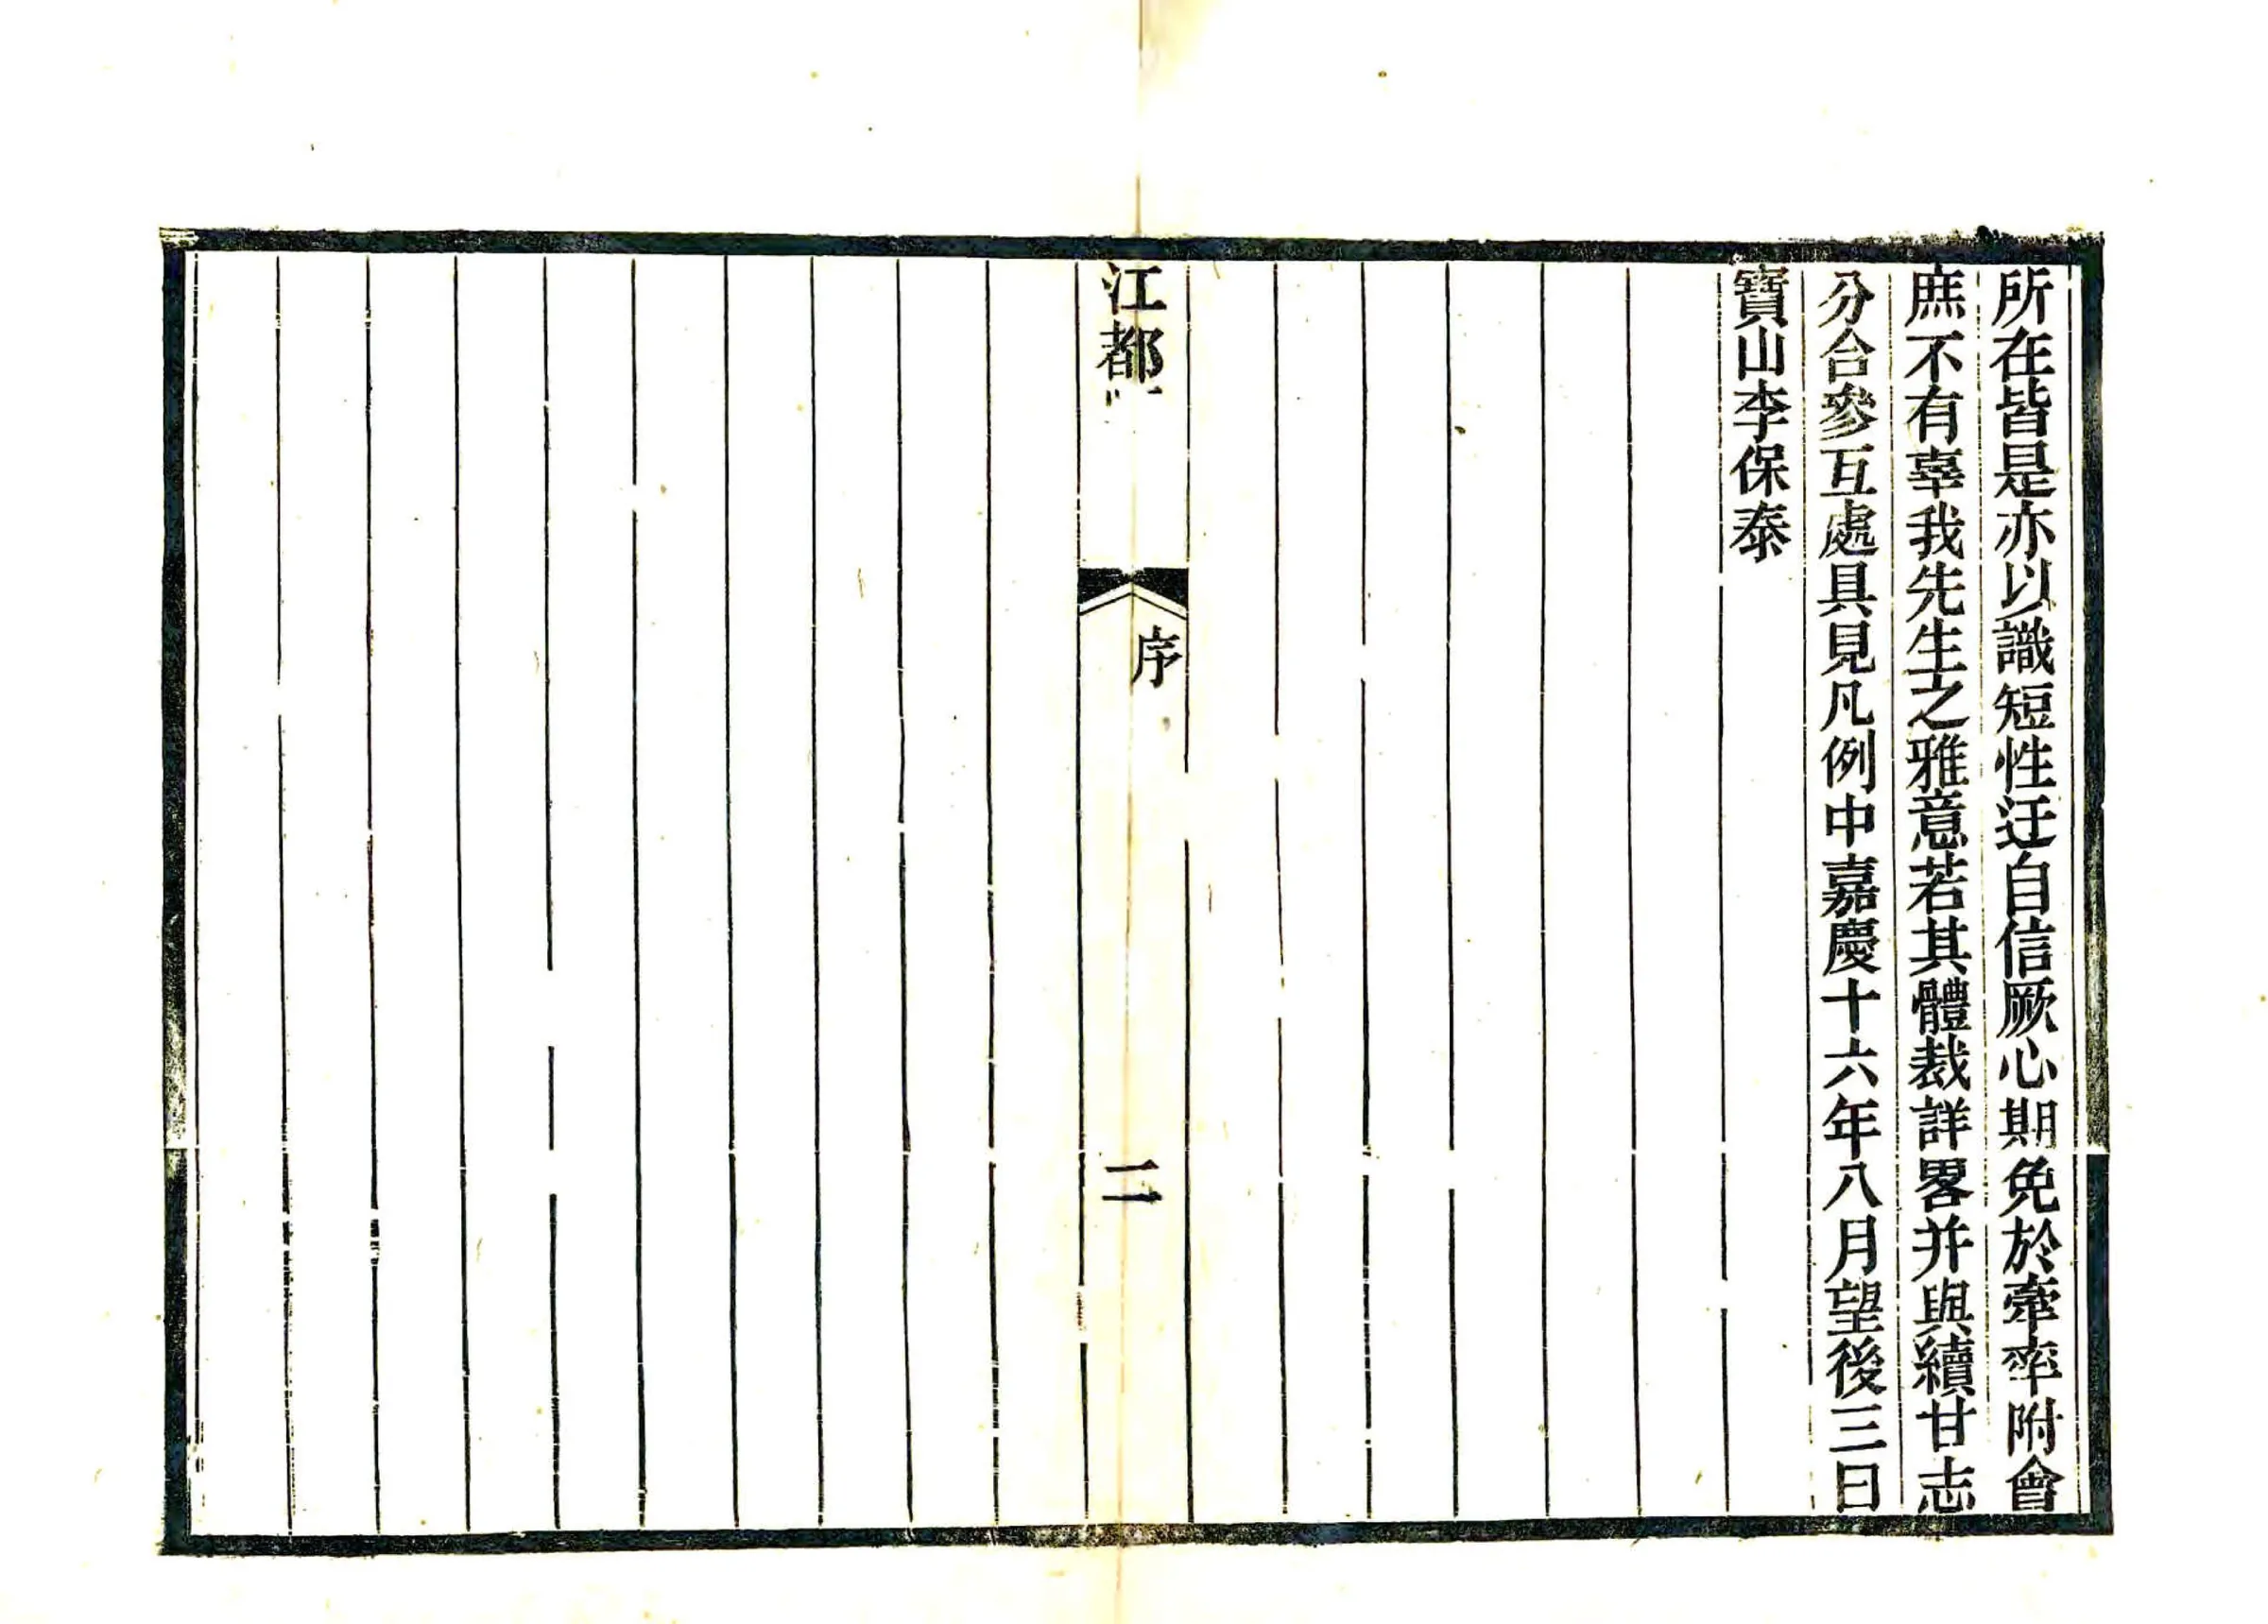 所在皆是亦以識短性迂自信厥心期免於牽率附會
庶不有辜我先生之雅意若其體裁詳畧并與續甘志
分合參互處具見凡例中嘉慶十六年八月望後三日
寶山李保泰
江都
序
二